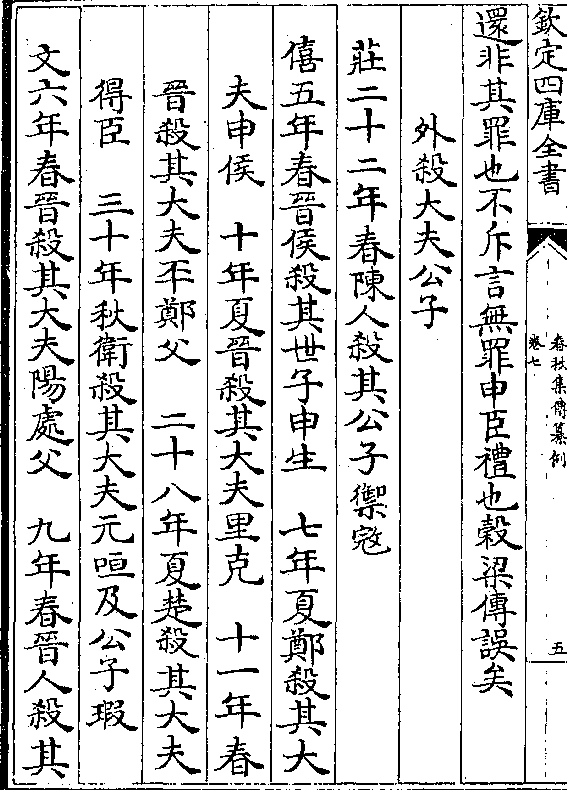 欽定四庫全書
春秋集傳纂例
卷七
五
還非其罪也不斥言無罪申臣禮也穀梁傳誤矣
外殺大夫公子
莊二十二年春陳人殺其公子禦寇
僖五年春晉侯殺其世子申生 七年夏鄭殺其大
夫申侯 十年夏晉殺其大夫里克 十一年春
晉殺其大夫丕鄭父 二十八年夏楚殺其大夫
得臣 三十年秋衛殺其大夫元咺及公子瑕
文六年春晉殺其大夫陽處父 九年春晉人殺其